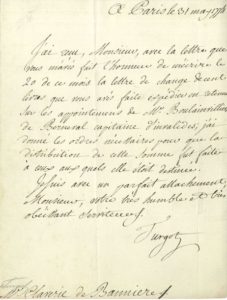 A Paris le 31 may 1776
J'ai reçu, Monsieur, avec la lettre que
vous m'avés fait l'honneur de m'écrire le
20 de ce mois la lettre de change de cent
livres que vous avés faite expédier en retenue
sur les appointemens de Mr. Boulainvilliers
de Bernaval capitaine d'invalides, j'ai
donné les ordres nécessaires pour que la
distribution de cette somme fut faite
à ceux auxquels elle était destinée.
Je suis avec un parfait attachement,
Monsieur, votre très humble et très
obéissant serviteur
Turgot
Mr. de Bannieres